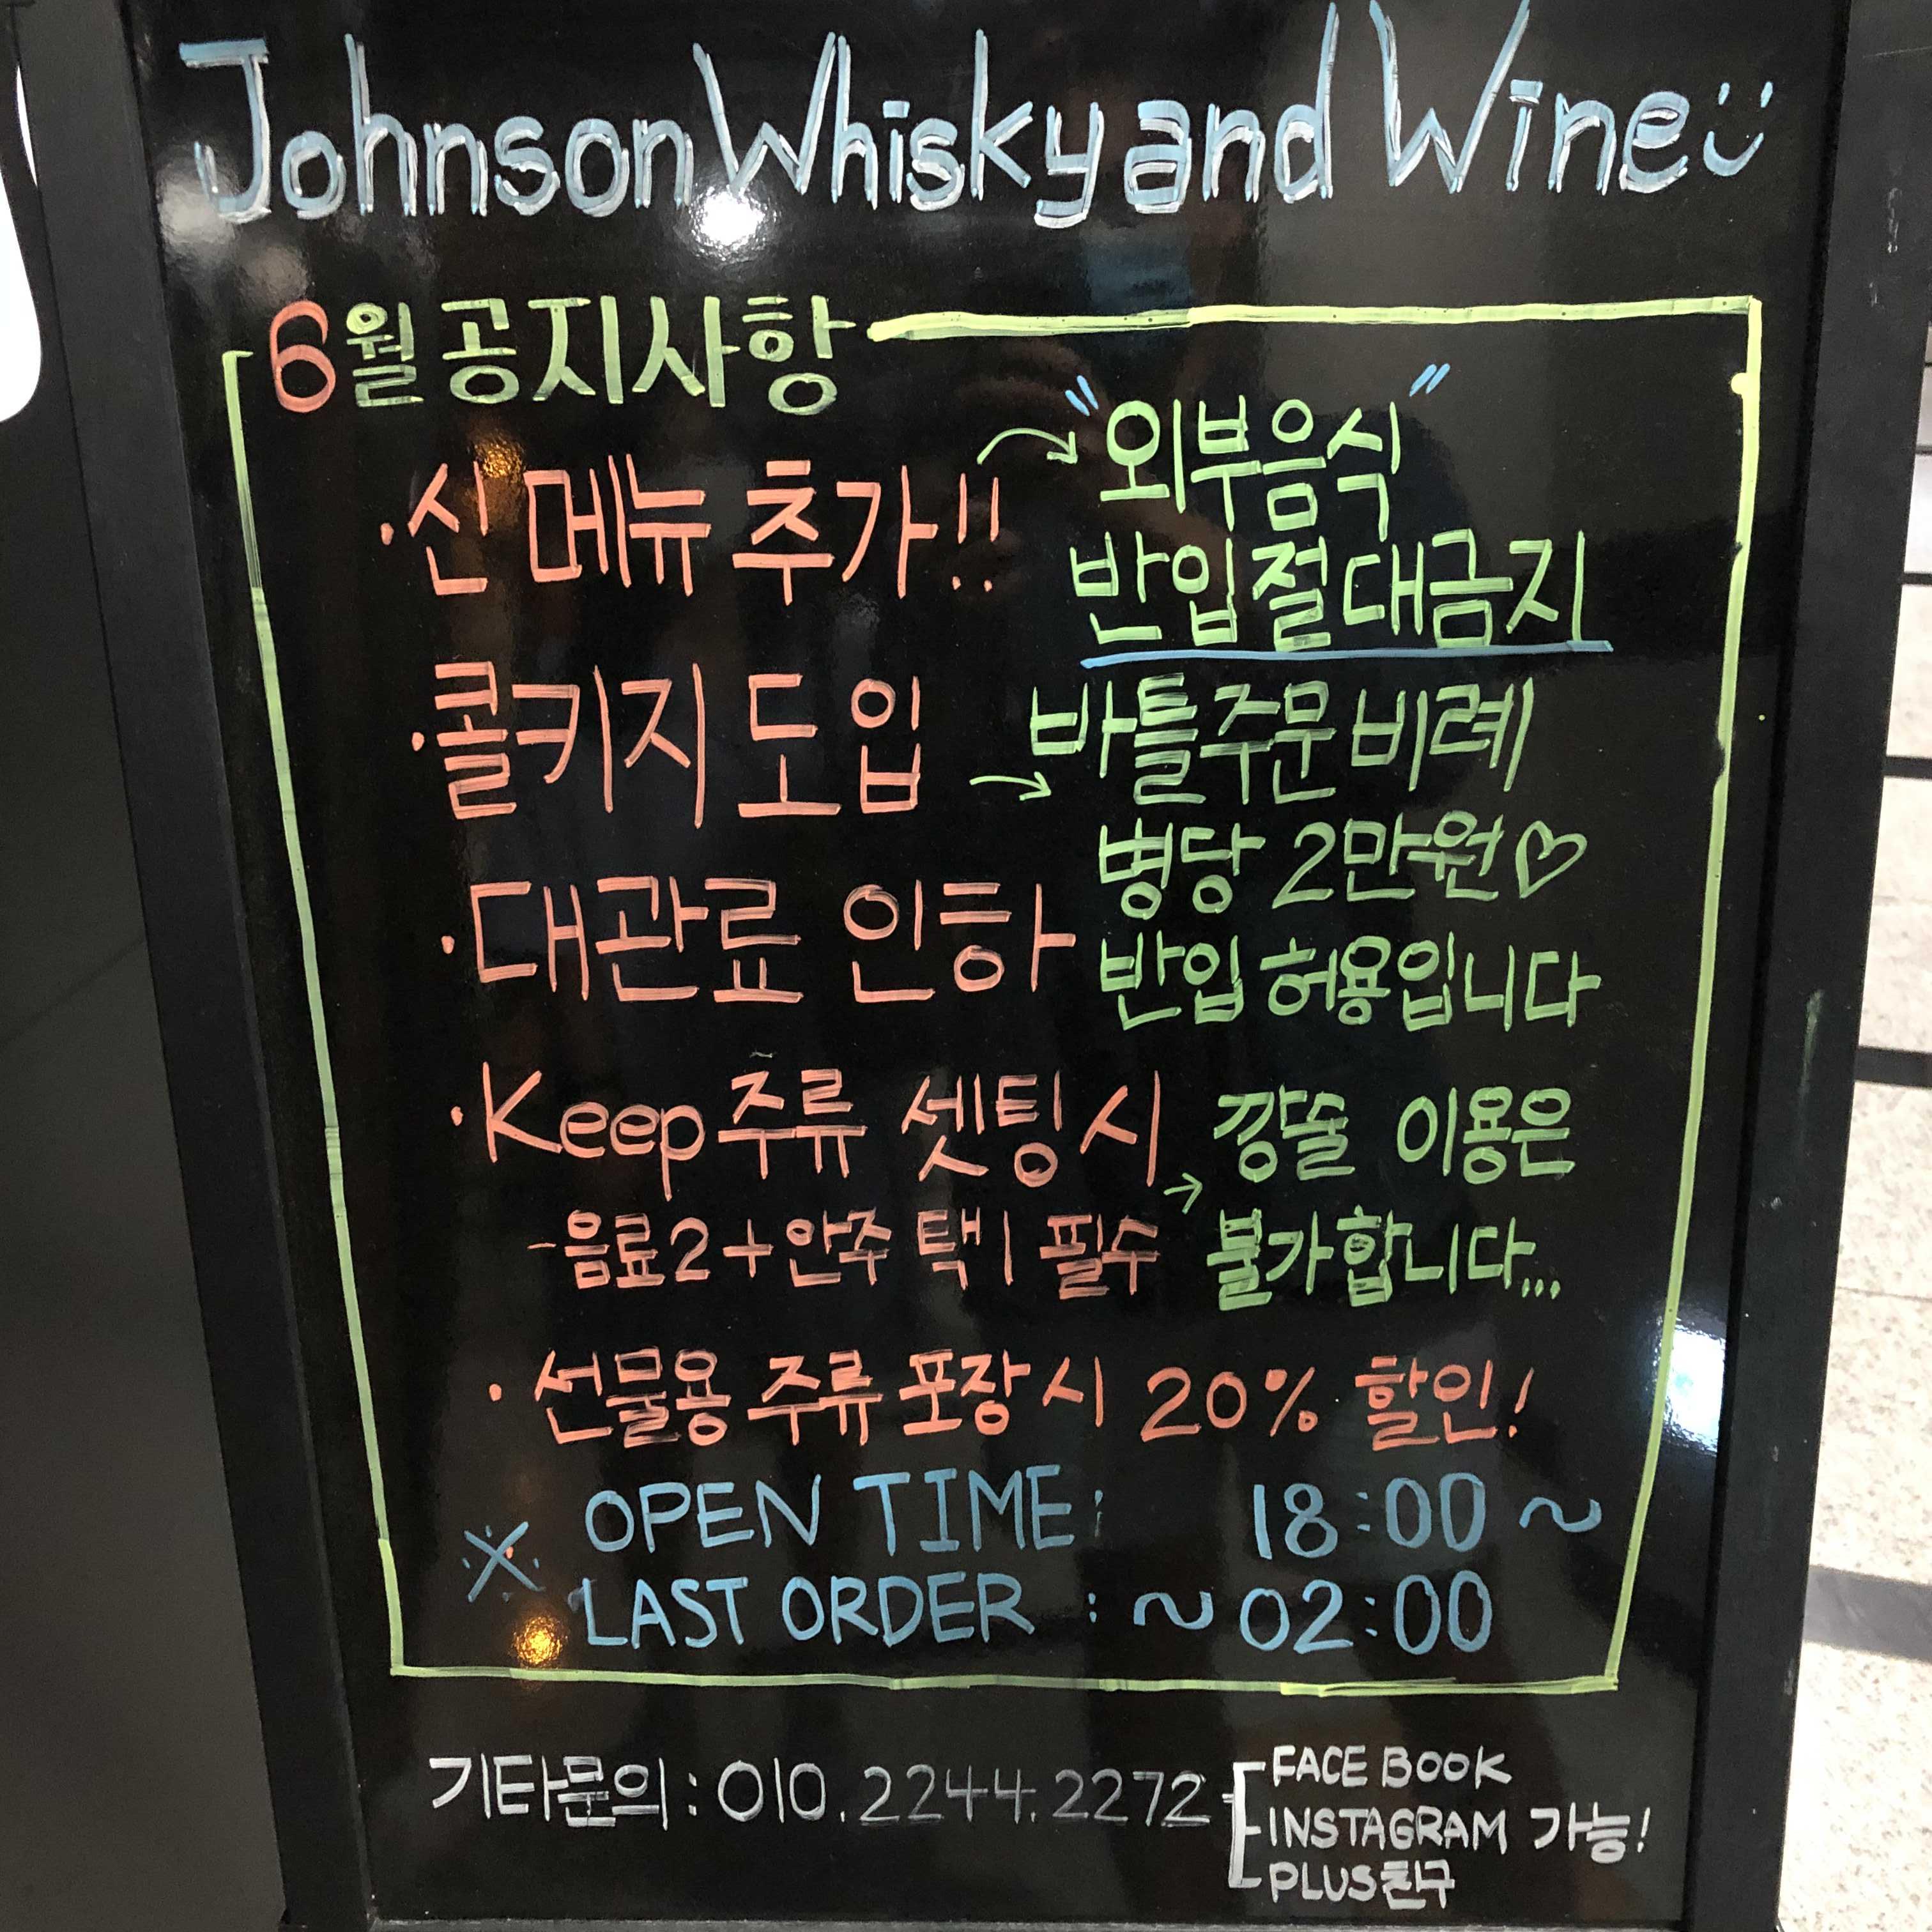 Johnson Whisky and Wine
6월 공지사항
· 신 메뉴 추가!! → "외부음식"
반입절대금지
· 콜키지 도입 → 바틀주문 비례
병당 2만원♡
· 대관료 인하
반입 허용입니다
· Keep 주류 셋팅 시
깡술 이용은
- 음료2+안주 택1 필수 → 불가합니다...
· 선물용 주류 포장 시 20% 할인!
※ OPEN TIME: 18:00 ~
LAST ORDER : ~ 02:00
기타문의 : 010.2244.2272
FACE BOOK
INSTAGRAM 가능!
PLUS친구